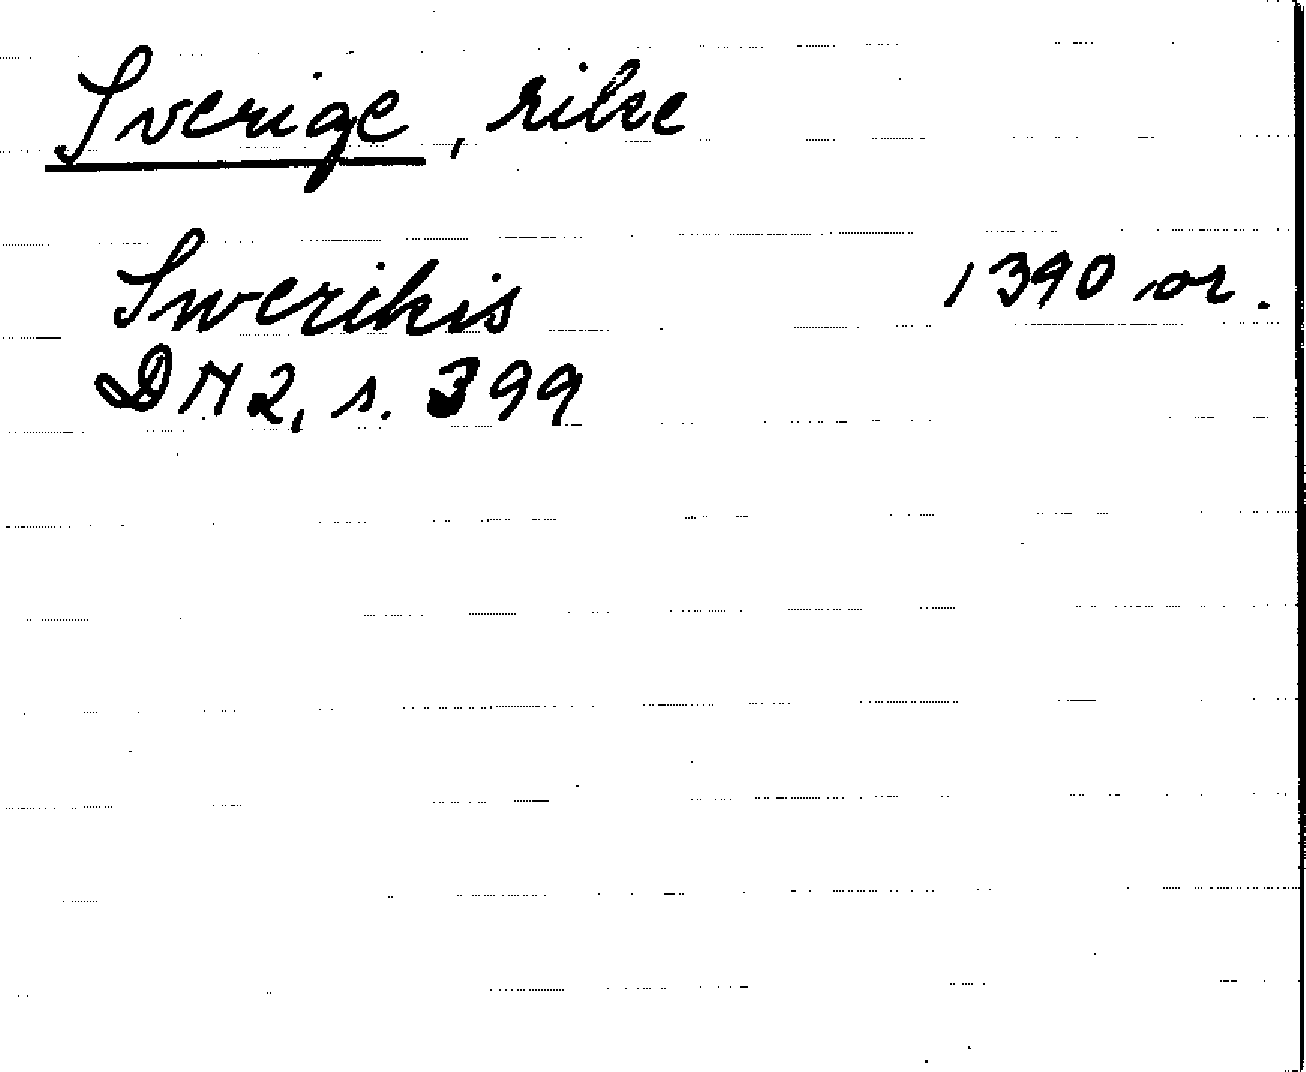 Sverige, rike
Swerikis 1390 or.
DN2, s. 399